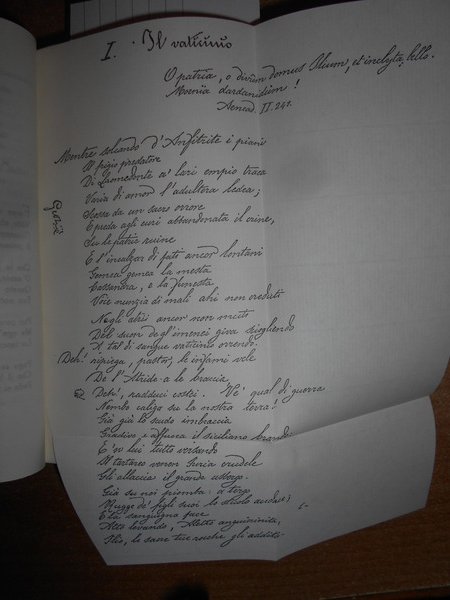 I. Il vaticinio
O patria, o divum domus Ilium, et inclyta bello
Moenia dardanidum!
Aenead. II. 241.
Mentre solcando d'Anfitrite i piani
Il frigio predatore
Di Laomedonte a' lari empio traea
Varia di amor l'adultera ledea;
Scossa da un sacro orrore
E presta agli euri abbandonata il crine,
Su le patrie ruine
E l'incalzar di fati ancor lontani
Gemea gemea la mesta
Cassandra, e la funesta
Voce nunzia di mali ahi non creduti
Negli atrii ancor non muti
Del suon degl'imenei giva sciogliendo
A tal di sangue vaticinio orrendo.
Deh! ripiega, pastor, le infami vele
De l'Atride a le braccia
Deh!, radduci costei. Ve' qual di guerra
Nembo caliga su la nostra terra!
Già già lo scudo imbraccia
Gradivo, e affierra il siciliano brando
E su lui tutto versando
Il tartareo venen Furia crudele
Gli allaccia il grande usbergo.
Già su noi piomba: a tergo
Rugge de' figli suoi lo stuolo audace;
E la sanguigna face
Alto levando, Aletto anguicrinita,
Ilio, le sacre tue rocche gli addita